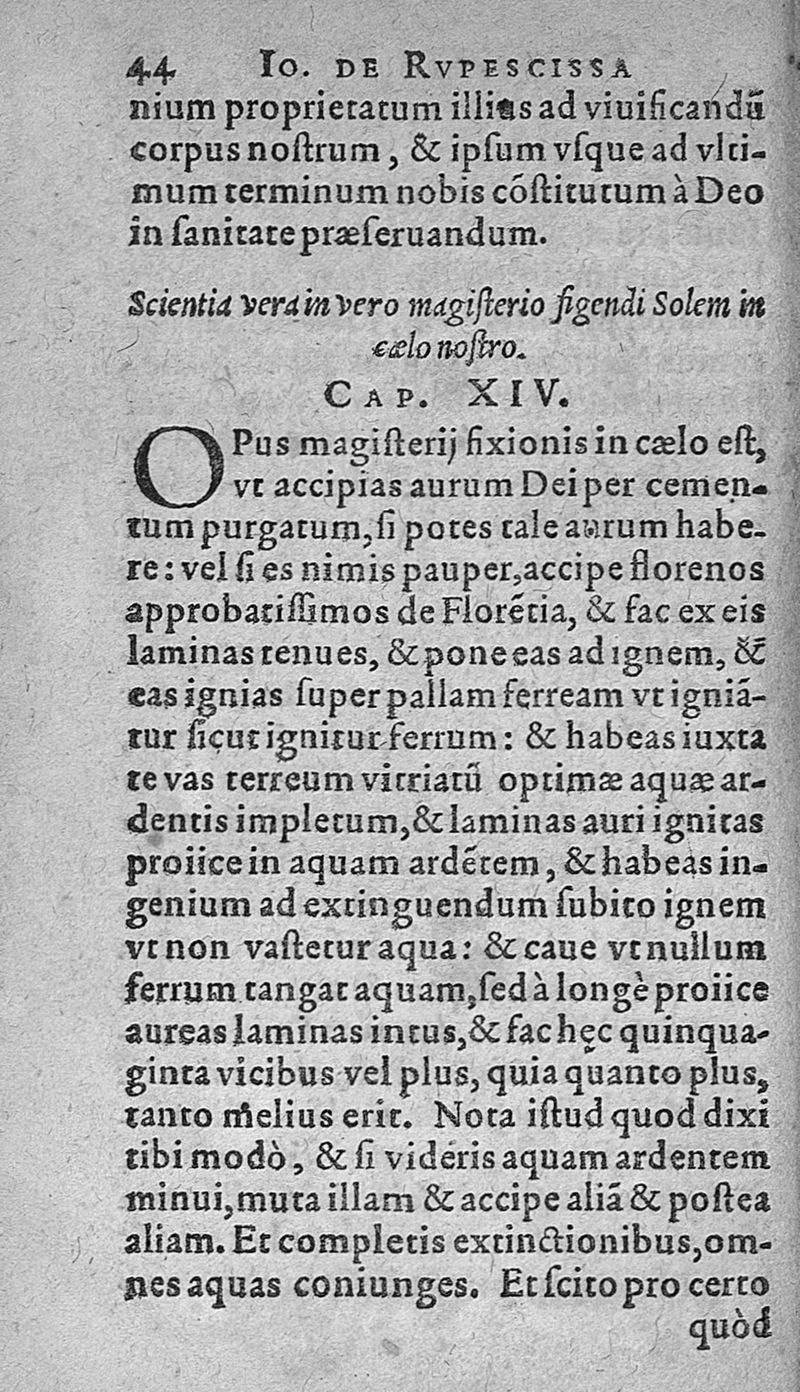 44 IO. DE RVPESCISSA
nium proprietatum illius ad viuificandũ
corpus noſtrum, & ipſum vſque ad vlti-
mum terminum nobis cõſtitutum à Deo
in ſanitate præſeruandum.
Scientia vera in vero magiſterio figendi Solem in
cælo noſtro.
CAP. XIV.
OPus magiſterij fixionis in cælo eſt,
vt accipias aurum Dei per cemen-
tum purgatum, ſi potes tale aurum habe-
re: vel ſi es nimis pauper, accipe florenos
approbatiſſimos de Florẽtia, & fac ex eis
laminas tenues, & pone eas ad ignem, &
eas ignias ſuper pallam ferream vt igniã-
tur ſicut ignitur ferrum: & habeas iuxta
te vas terreum vitriatũ optimæ aquæ ar-
dentis impletum, & laminas auri ignitas
proiice in aquam ardẽtem, & habeas in-
genium ad extinguendum ſubito ignem
vt non vaſtetur aqua: & caue vt nullum
ferrum tangat aquam, ſed à longè proiice
aureas laminas intus, & fac hęc quinqua-
ginta vicibus vel plus, quia quanto plus,
tanto melius erit. Nota iſtud quod dixi
tibi modò, & ſi videris aquam ardentem
minui, muta illam & accipe aliã & poſtea
aliam. Et completis extinctionibus, om-
nes aquas coniunges. Et ſcito pro certo
quòd